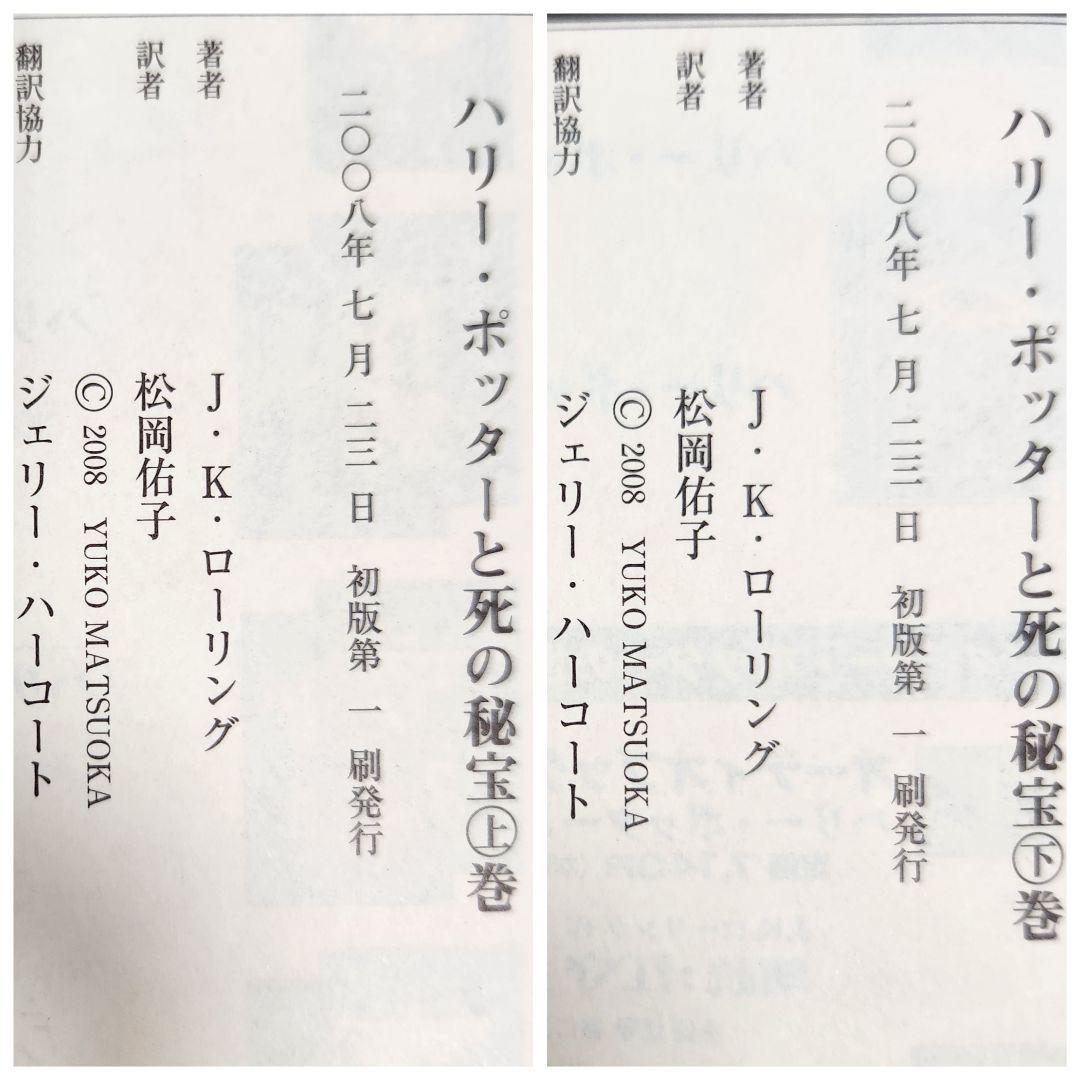 ハリー・ポッターと死の秘宝㊤巻
二〇〇八年 七月 二三日 初版第 一 刷発行
著者 J・K・ローリング
訳者 松岡佑子
© 2008 YUKO MATSUOKA
翻訳協力 ジェリー・ハーコート
ハリー・ポッターと死の秘宝㊦巻
二〇〇八年 七月 二三日 初版第 一 刷発行
著者 J・K・ローリング
訳者 松岡佑子
© 2008 YUKO MATSUOKA
翻訳協力 ジェリー・ハーコート